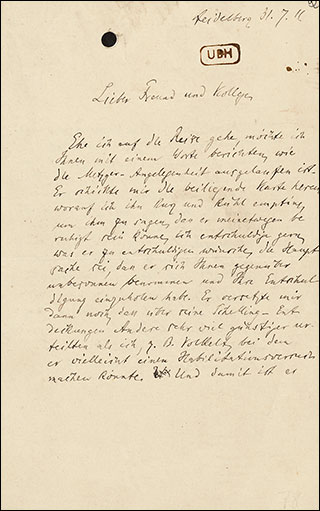 Heidelberg 31.7.11
UBH
Lieber Freund und Kollege,
Ehe ich auf die Reise gehe möchte ich
Ihnen mit einem Worte berichten, wie
die Metzger-Angelegenheit ausgelaufen ist.
Er schickte mir die beiliegende Karte herein
worauf ich ihn kurz und kühl empfing,
um ihm zu sagen, dass er meinetwegen be
ruhigt sein könne, ich entschuldige gern,
was er zu entschuldigen wünsche, die Haupt
sache sei, dass er sich Ihnen gegenüber
unbesonnen benommen und Ihre Entschul
digung einzuholen habe. Er versetzte mir
dann noch, dass über seine Schelling-Ent
deckungen Andere sehr viel günstiger ur
teilten als ich, z. B. Volkelt, bei dem
er vielleicht einen Habilitationsversuch
machen könnte. Und damit ist er